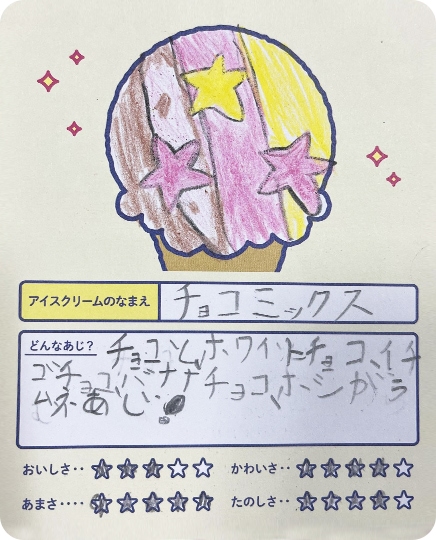 アイスクリームのなまえ
チョコミックス
どんなあじ?
チョコ、とホワイトチョコ、イチ
ゴチョコ、バナナチョコ、
あじ!
おいしさ‥
かわいさ‥
あまさ‥‥
たのしさ‥